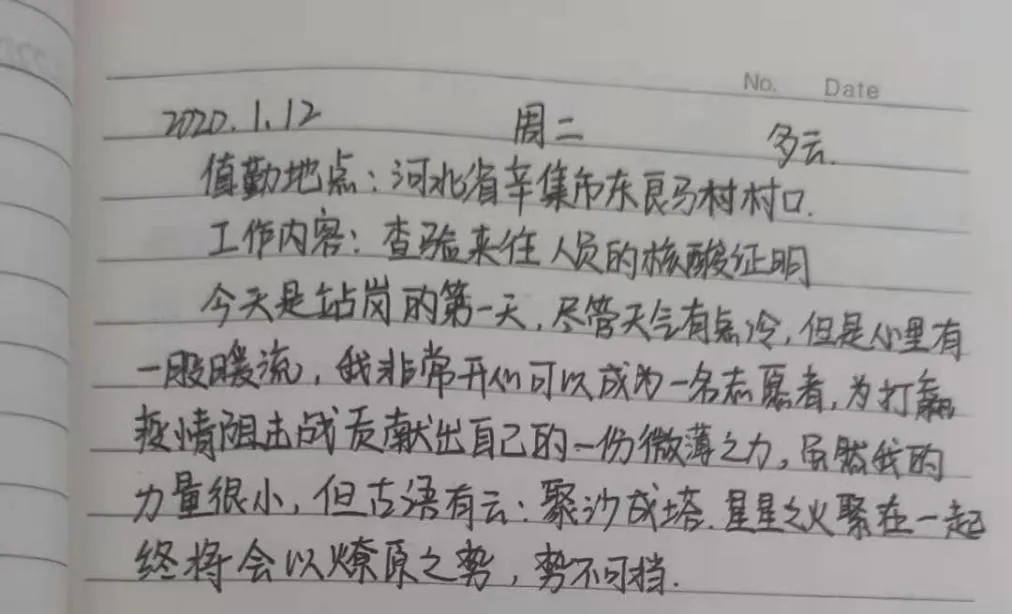 No. Date
2020.1.12 周二 多云.
值勤地点:河北省辛集市东良马村村口.
工作内容:查验来往人员的核酸证明
今天是站岗的第一天,尽管天气有点冷,但是心里有
一股暖流,我非常开心可以成为一名志愿者,为打赢
疫情阻击战贡献出自己的一份微薄之力,虽然我的
力量很小,但古语有云:聚沙成塔.星星之火聚在一起
终将会以燎原之势,势不可挡.